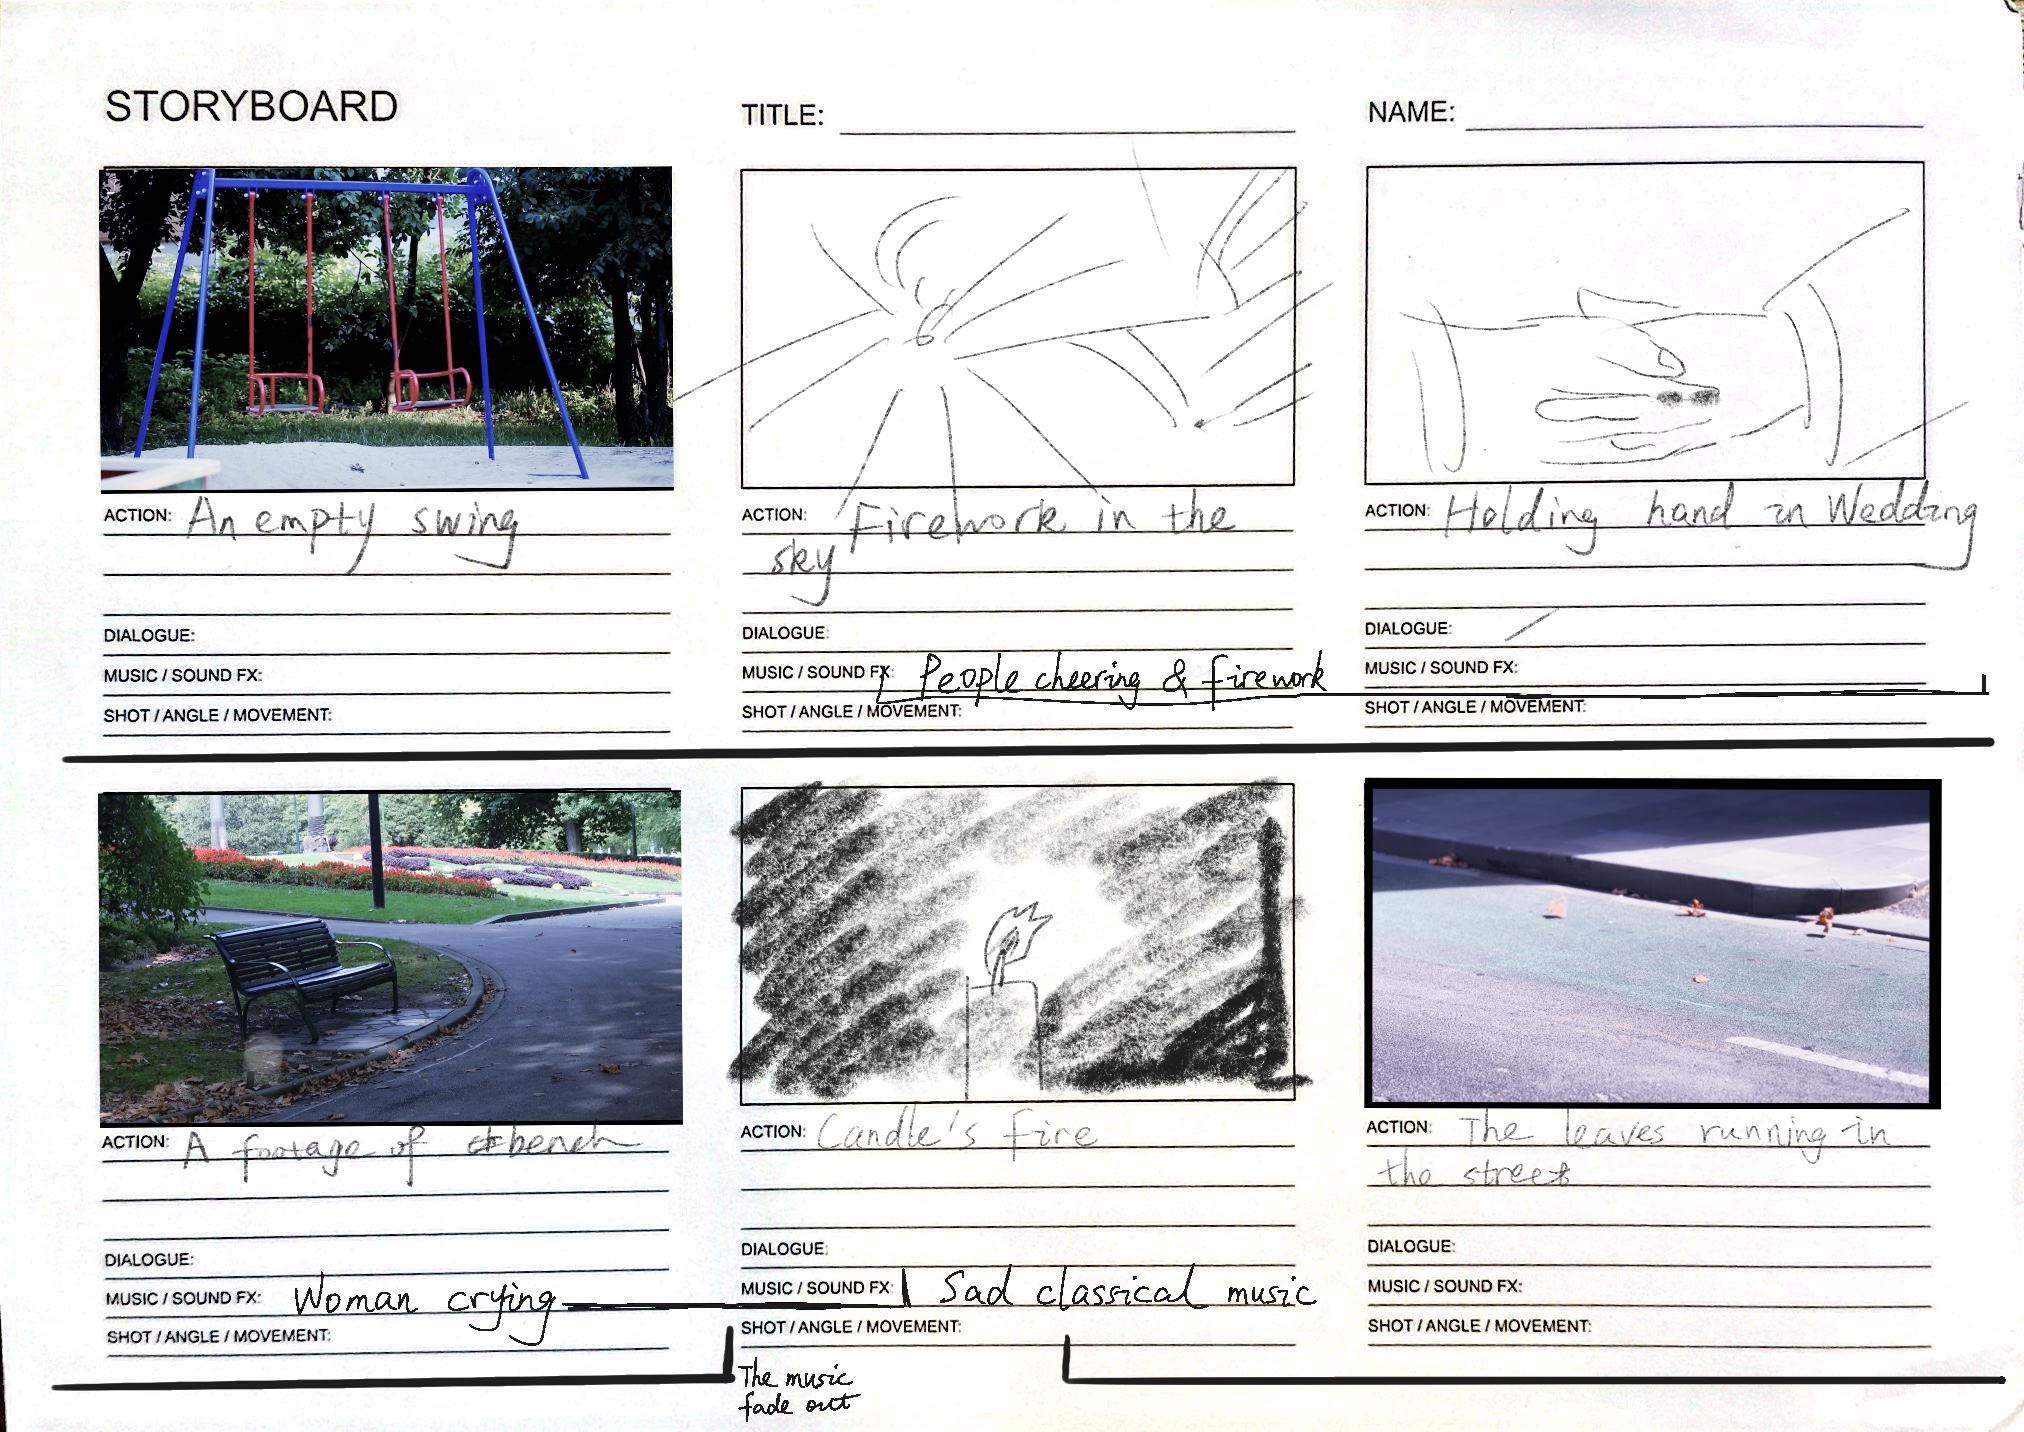 STORYBOARD
TITLE:
NAME:
ACTION: An empty swing
DIALOGUE:
MUSIC / SOUND FX:
SHOT / ANGLE / MOVEMENT:
ACTION: Firework in the
sky
DIALOGUE:
MUSIC / SOUND FX: People cheering & firework
SHOT / ANGLE / MOVEMENT:
ACTION: Holding hand in Wedding
DIALOGUE:
MUSIC / SOUND FX:
SHOT / ANGLE / MOVEMENT:
ACTION: A footage of bench
DIALOGUE:
MUSIC / SOUND FX: Woman crying
SHOT / ANGLE / MOVEMENT:
ACTION: Candle's fire
DIALOGUE:
MUSIC / SOUND FX: Sad classical music
SHOT / ANGLE / MOVEMENT:
The music
fade out
ACTION: The leaves running in
the street
DIALOGUE:
MUSIC / SOUND FX:
SHOT / ANGLE / MOVEMENT: